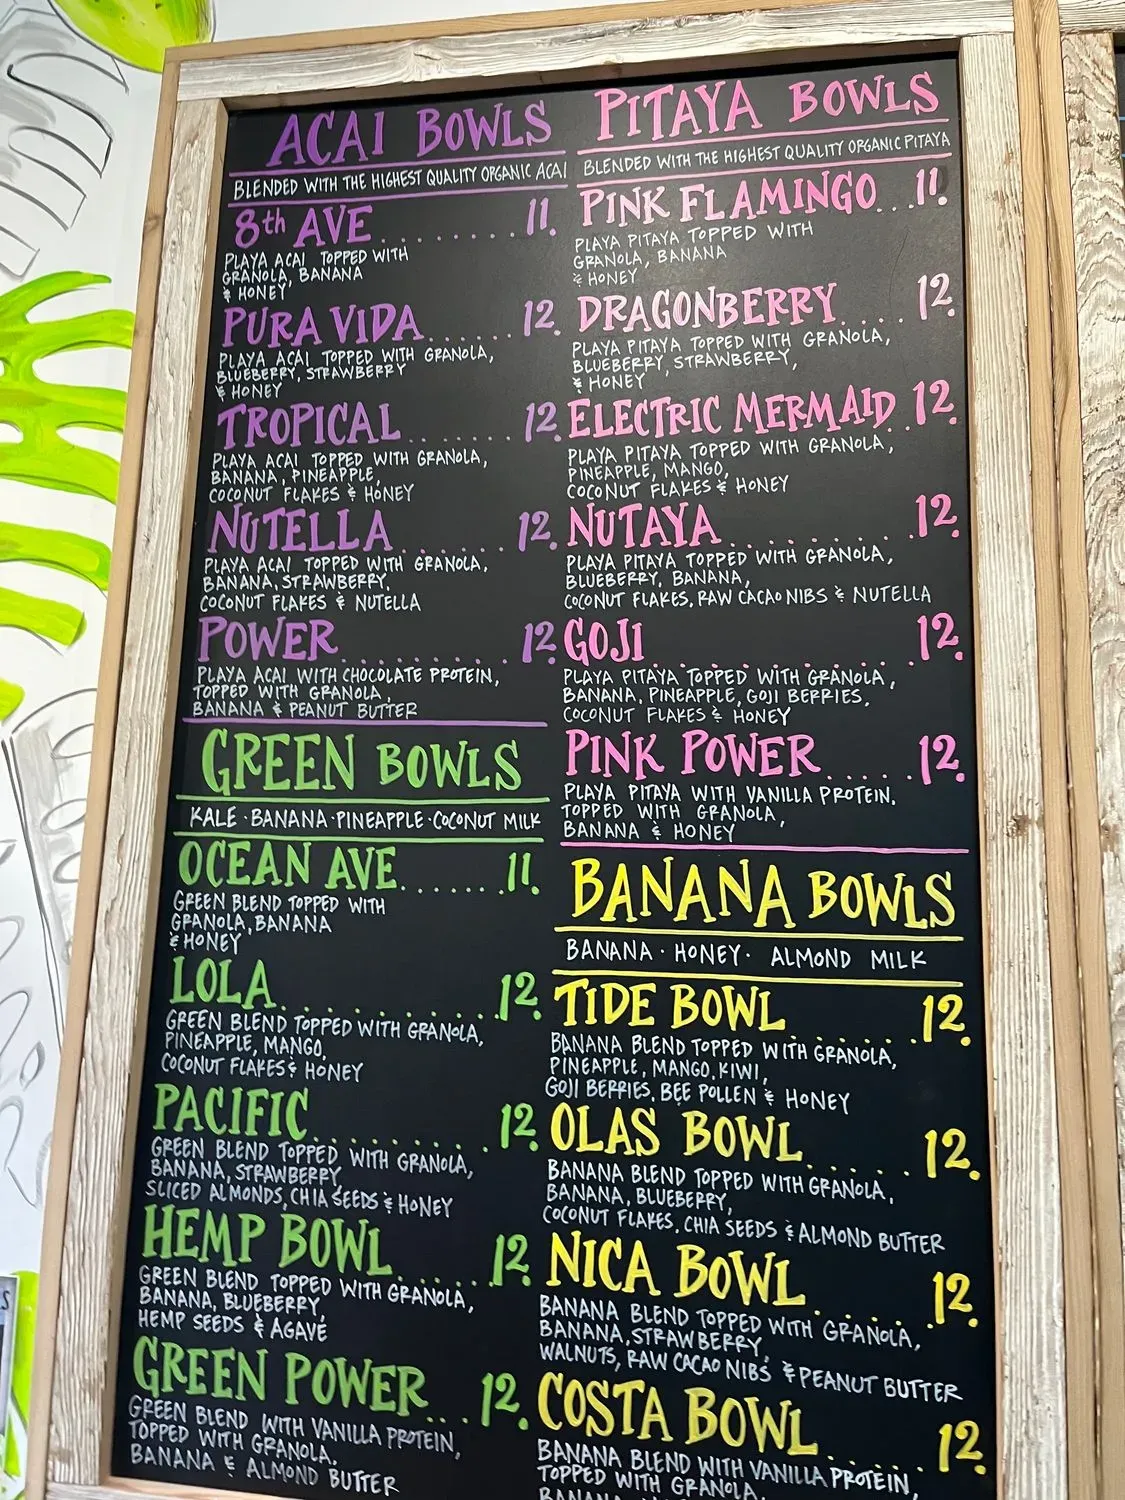 ACAI BOWLS
BLENDED WITH THE HIGHEST QUALITY ORGANIC ACAI
8th AVE......... 11.
PLAYA ACAI TOPPED WITH
GRANOLA, BANANA
& HONEY
PURA VIDA....... 12.
PLAYA ACAI TOPPED WITH GRANOLA,
BLUEBERRY, STRAWBERRY
& HONEY
TROPICAL....... 12.
PLAYA ACAI TOPPED WITH GRANOLA,
BANANA, PINEAPPLE,
COCONUT FLAKES & HONEY
NUTELLA....... 12.
PLAYA ACAI TOPPED WITH GRANOLA,
BANANA, STRAWBERRY,
COCONUT FLAKES & NUTELLA
POWER.......... 12.
PLAYA ACAI WITH CHOCOLATE PROTEIN,
TOPPED WITH GRANOLA,
BANANA & PEANUT BUTTER
GREEN BOWLS
KALE · BANANA · PINEAPPLE · COCONUT MILK
OCEAN AVE....... 11.
GREEN BLEND TOPPED WITH
GRANOLA, BANANA
& HONEY
LOLA............ 12.
GREEN BLEND TOPPED WITH GRANOLA,
PINEAPPLE, MANGO,
COCONUT FLAKES & HONEY
PACIFIC.......... 12.
GREEN BLEND TOPPED WITH GRANOLA,
BANANA, STRAWBERRY
SLICED ALMONDS, CHIA SEEDS & HONEY
HEMP BOWL..... 12.
GREEN BLEND TOPPED WITH GRANOLA,
BANANA, BLUEBERRY,
HEMP SEEDS & AGAVE
GREEN POWER... 12.
GREEN BLEND WITH VANILLA PROTEIN,
TOPPED WITH GRANOLA,
BANANA & ALMOND BUTTER
PITAYA BOWLS
BLENDED WITH THE HIGHEST QUALITY ORGANIC PITAYA
PINK FLAMINGO... 11.
PLAYA PITAYA TOPPED WITH
GRANOLA, BANANA
& HONEY
DRAGONBERRY.... 12.
PLAYA PITAYA TOPPED WITH GRANOLA,
BLUEBERRY, STRAWBERRY,
& HONEY
ELECTRIC MERMAID.. 12.
PLAYA PITAYA TOPPED WITH GRANOLA,
PINEAPPLE, MANGO,
COCONUT FLAKES & HONEY
NUTAYA.......... 12.
PLAYA PITAYA TOPPED WITH GRANOLA,
BLUEBERRY, BANANA,
COCONUT FLAKES, RAW CACAO NIBS & NUTELLA
GOJI............. 12.
PLAYA PITAYA TOPPED WITH GRANOLA,
BANANA, PINEAPPLE, GOJI BERRIES,
COCONUT FLAKES & HONEY
PINK POWER...... 12.
PLAYA PITAYA WITH VANILLA PROTEIN,
TOPPED WITH GRANOLA,
BANANA & HONEY
BANANA BOWLS
BANANA · HONEY · ALMOND MILK
TIDE BOWL....... 12.
BANANA BLEND TOPPED WITH GRANOLA,
PINEAPPLE, MANGO, KIWI,
GOJI BERRIES, BEE POLLEN & HONEY
OLAS BOWL...... 12.
BANANA BLEND TOPPED WITH GRANOLA,
BANANA, BLUEBERRY,
COCONUT FLAKES, CHIA SEEDS & ALMOND BUTTER
NICA BOWL...... 12.
BANANA BLEND TOPPED WITH GRANOLA,
BANANA, STRAWBERRY,
WALNUTS, RAW CACAO NIBS & PEANUT BUTTER
COSTA BOWL..... 12.
BANANA BLEND WITH VANILLA PROTEIN,
TOPPED WITH GRANOLA,